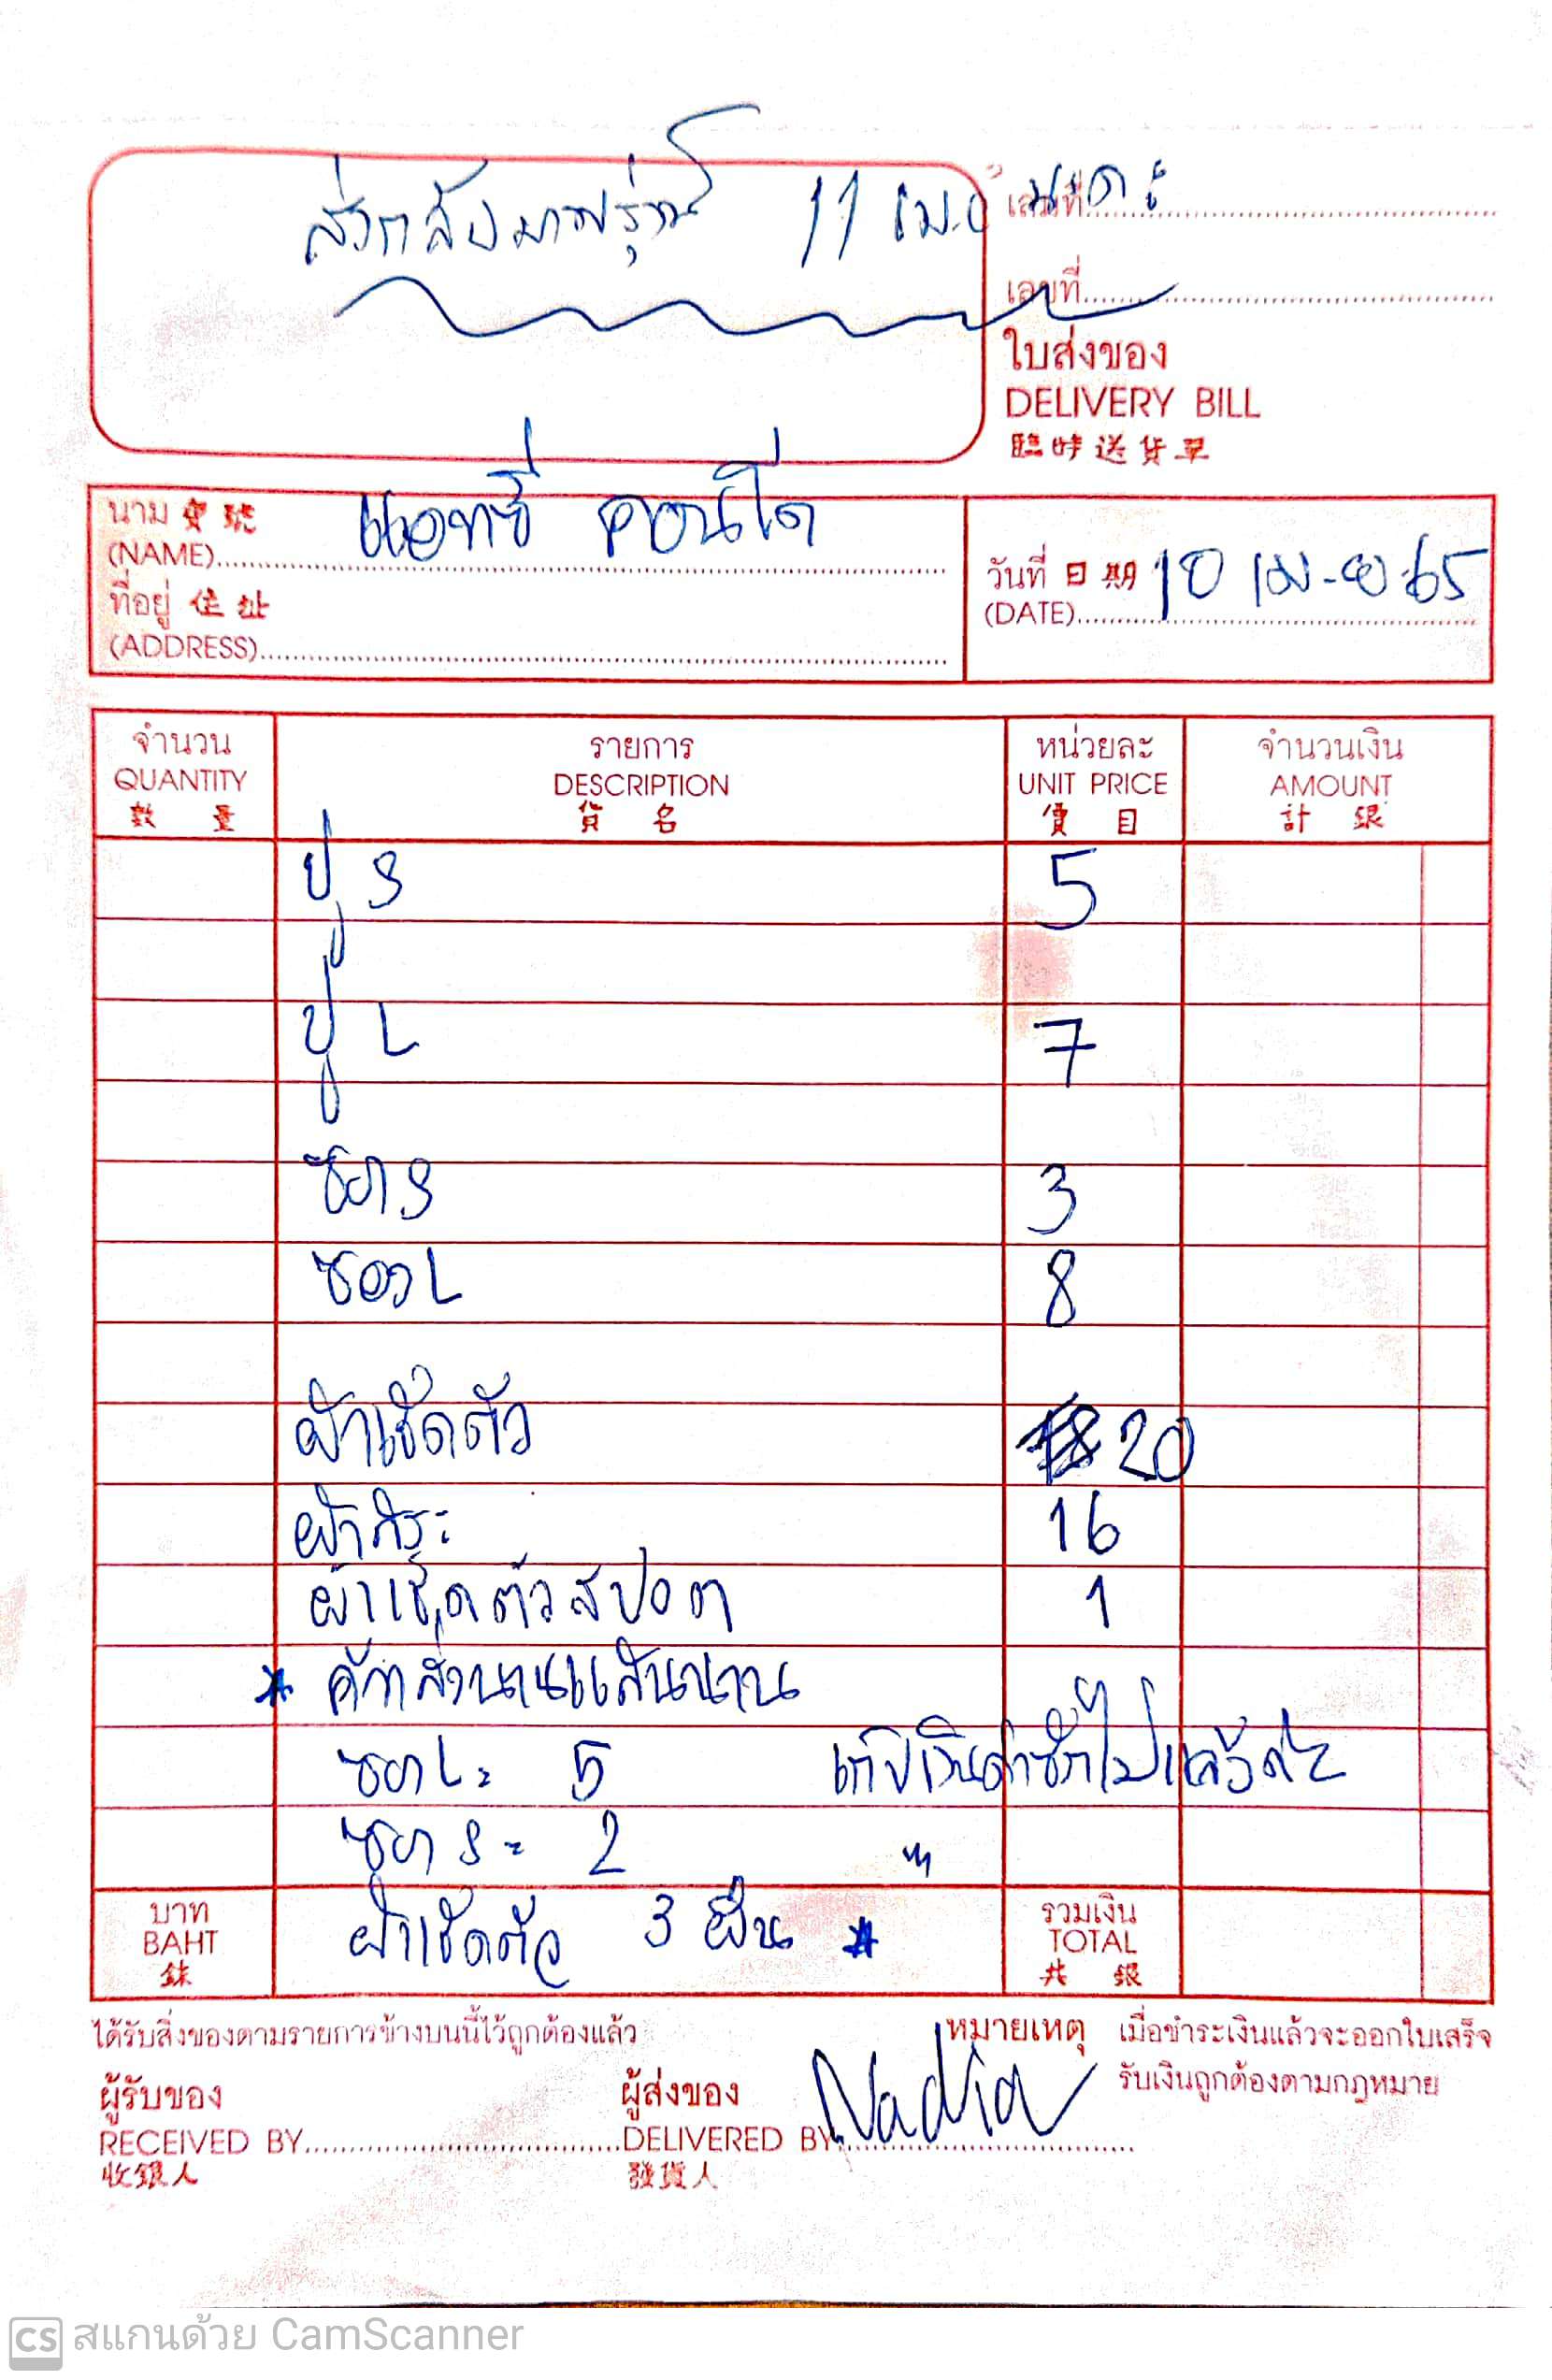 ส่งกลับมาพรุ่งนี้ 11 เม.ย นะคะ
เล่มที่
เลขที่
ใบส่งของ
DELIVERY BILL
臨時送貨單
นาม 寶號
(NAME) แอทซี คอนโด
ที่อยู่ 住址
(ADDRESS)
วันที่ 日期 10 เม.ย.65
(DATE)
จำนวน รายการ หน่วยละ จำนวนเงิน
QUANTITY DESCRIPTION UNIT PRICE AMOUNT
數量 貨名 價目 計銀
ปู S 5
ปู L 7
ซอง S 3
ซอง L 8
ผ้าเช็ดตัว 20
ผ้าสระ 16
ผ้าเช็ดตัวสปอต 1
* ค้างส่งนานแสนนาน
ซอง L = 5 เก็บเงินค่าซักไปแล้วค่ะ
ซอง S = 2 "
ผ้าเช็ดตัว 3 ผืน *
บาท รวมเงิน
BAHT TOTAL
銖 共銀
ได้รับสิ่งของตามรายการข้างบนนี้ไว้ถูกต้องแล้ว
หมายเหตุ เมื่อชำระเงินแล้วจะออกใบเสร็จ
รับเงินถูกต้องตามกฎหมาย
ผู้รับของ ผู้ส่งของ
RECEIVED BY DELIVERED BY Nadia
收銀人 發貨人
CS สแกนด้วย CamScanner